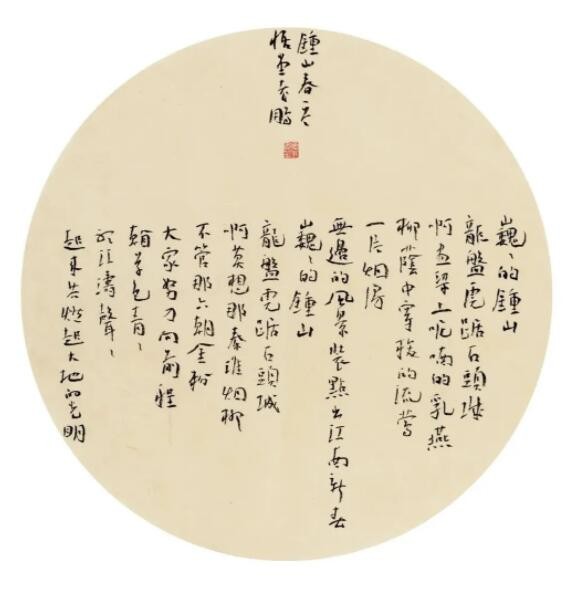 鍾山春
巍巍的鍾山
龍盤虎踞石頭城
啊畫梁上呢喃的乳燕
柳蔭中穿梭的流鶯
一片烟
無邊的風景裝點出江南新春
巍巍的鍾山
龍盤虎踞石頭城
啊莫想那秦淮烟柳
不管那六朝金粉
大家努力向前程
草色青青
聽江濤聲聲
起來共燃起大地的光明